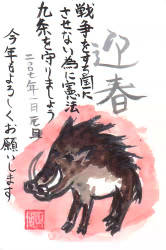 迎春
戦争をする国に
させない為に憲法
九条を守りましょう
二〇〇七年一月元旦
今年もよろしくお願いします